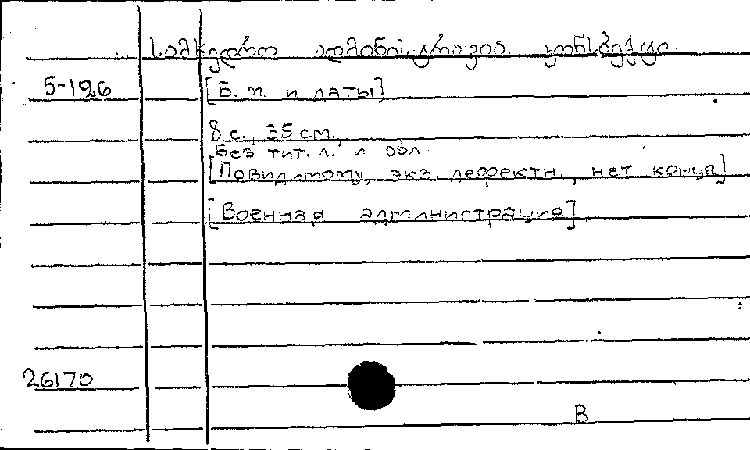 სამხედრო ადმინისტრაცია. კონსპექტი.
5-196 [Б. м. и даты]
8 с., 35 см.,
Без тит. л. и обл.
[Повидимому, экз. дефектн., нет конца]
[Военная администрация].
26170
В